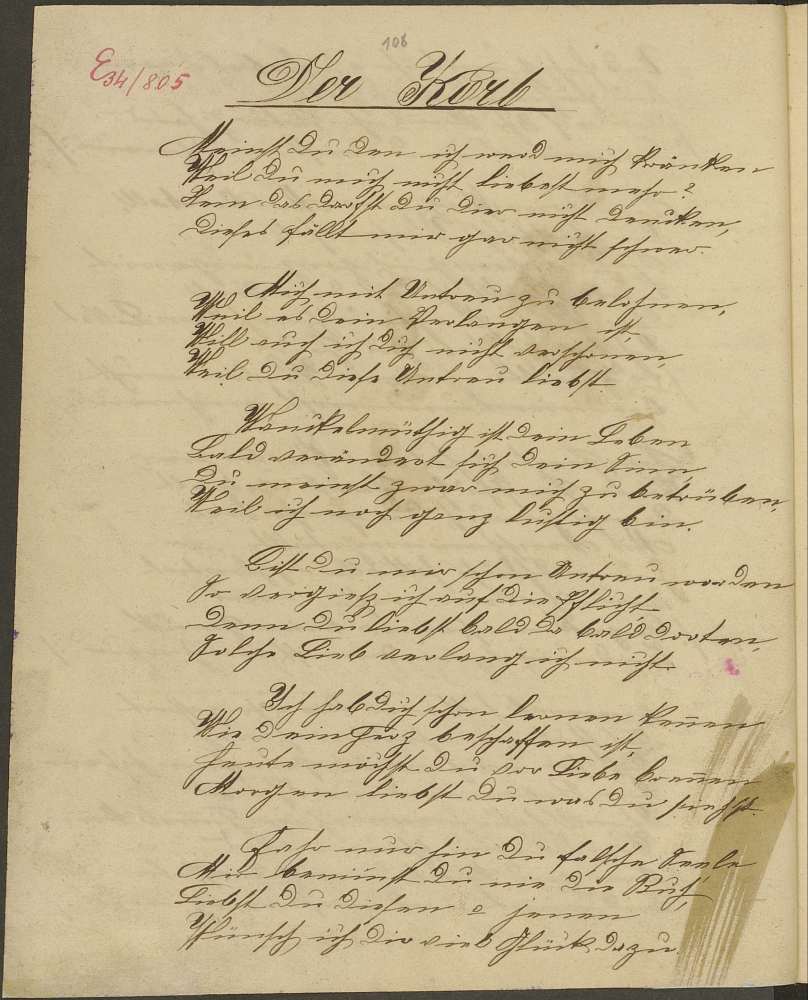 108
E34/805
Der Korb
Meinst Du den ich werd mich kränken
Weil Du mich nicht liebest mehr?
Nein das darfst Du Dier nicht denken,
Dieses fällt mir gar nicht schwer.
Mich mit Untreu zu belohnen,
Weil es Dein Verlangen ist,
Will auch ich Dich nicht verschonen,
Weil Du diese Untreu liebst.
Wankelmüthig ist Dein Leben
Bald verändert sich Dein Sinn,
Du meinst zwar mich zu betrüben,
Weil ich noch ganz lustig bin.
Bist Du mir schon Untreu worden
So vergieß ich auf die Pflicht
Denn Du liebst bald da bald dorten,
Solche Lieb verlang ich nicht.
Ich hab Dich schon lernen kennen
Wie Dein Herz beschaffen ist,
Heute möchst Du vor Liebe brennen
Morgen liebst Du was Du siehst.
Fahr nur hin Du falsche Seele
Mir Du nie die Ruh,
Liebst Du diesen o jenen
Wünsch ich Dir viel Glück dazu.